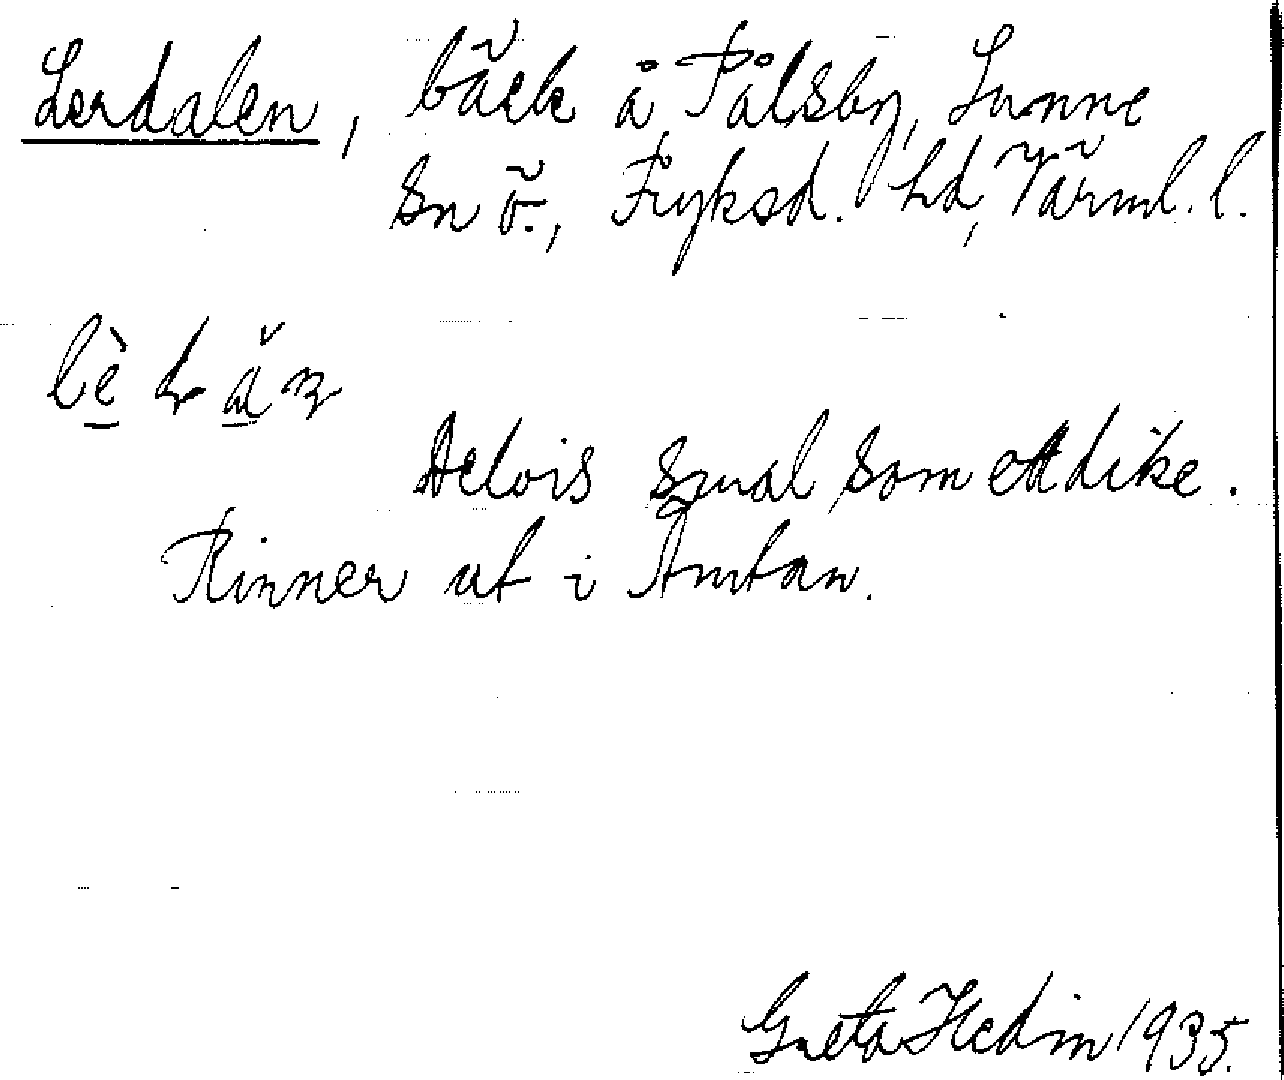 Lerdalen, bäck å Pålsby, Sunne
Sn ö., Fryksd. hd, Värml. l.
Delvis smal som ett dike.
Rinner ut i Åmtan.
Greta Hedin 1935.